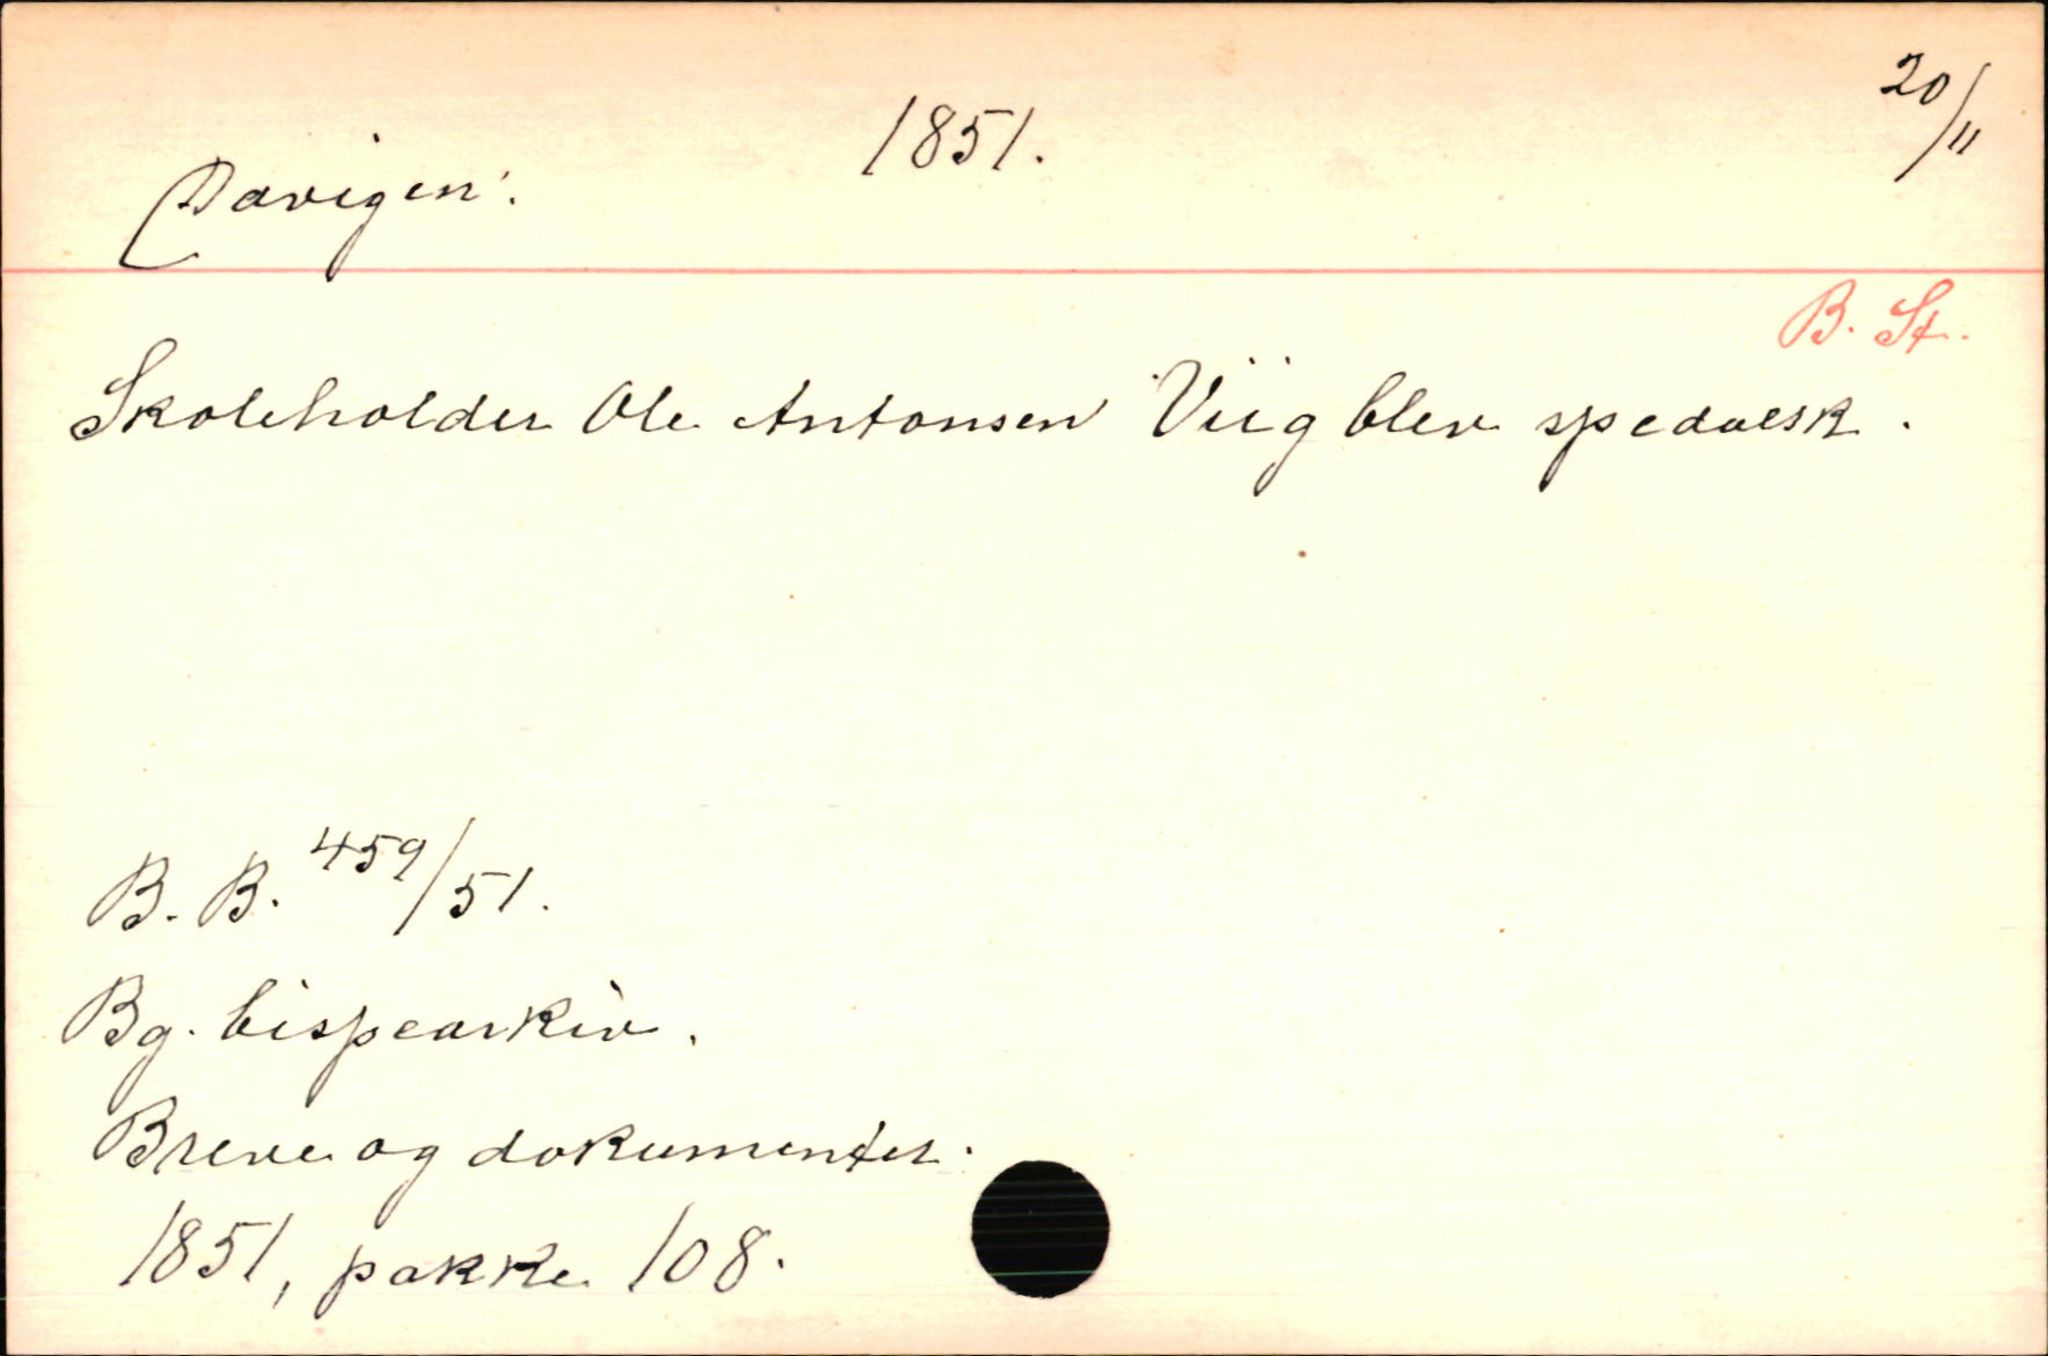 1851.
20/11
Davigen.
B. St.
Skoleholder Ole Antonsen Viig blev spedalsk.
B. B. 459/51.
Bg. bispearkiv.
Breve og dokumenter.
1851, pakke 108.